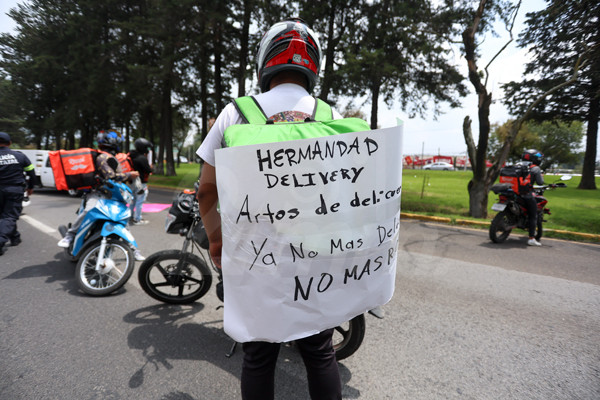 HERMANDAD
DELIVERY
Artos de delicue
Ya No Mas Del
NO MAS R